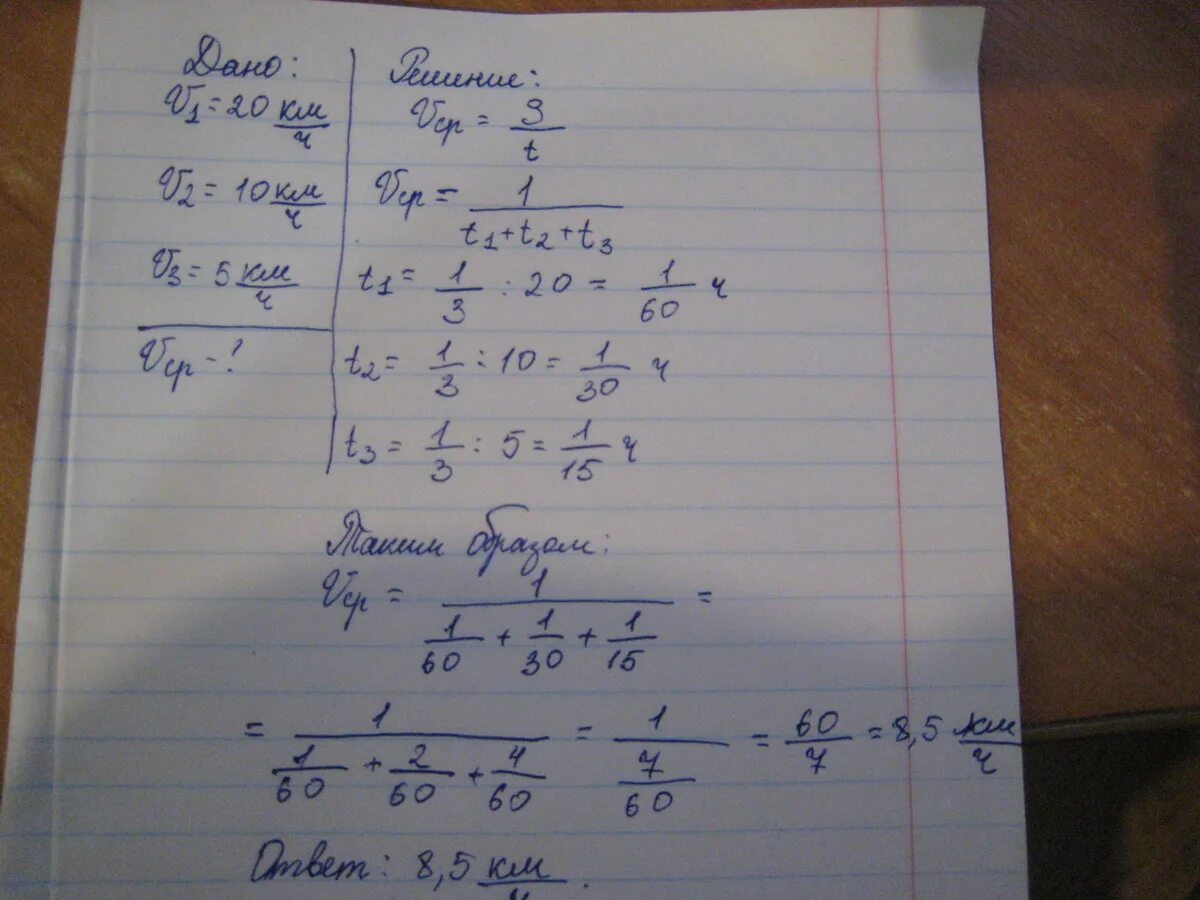 Дано:
V1 = 20 км/ч
V2 = 10 км/ч
V3 = 5 км/ч
Vср - ?
Решение:
Vср = S/t
Vср = 1/(t1+t2+t3)
t1 = 1/3 : 20 = 1/60 ч
t2 = 1/3 : 10 = 1/30 ч
t3 = 1/3 : 5 = 1/15 ч
Таким образом:
Vср = 1/(1/60 + 1/30 + 1/15) =
= 1/(1/60 + 2/60 + 4/60) = 1/(7/60) = 60/7 = 8,5 км/ч
Ответ: 8,5 км/ч.